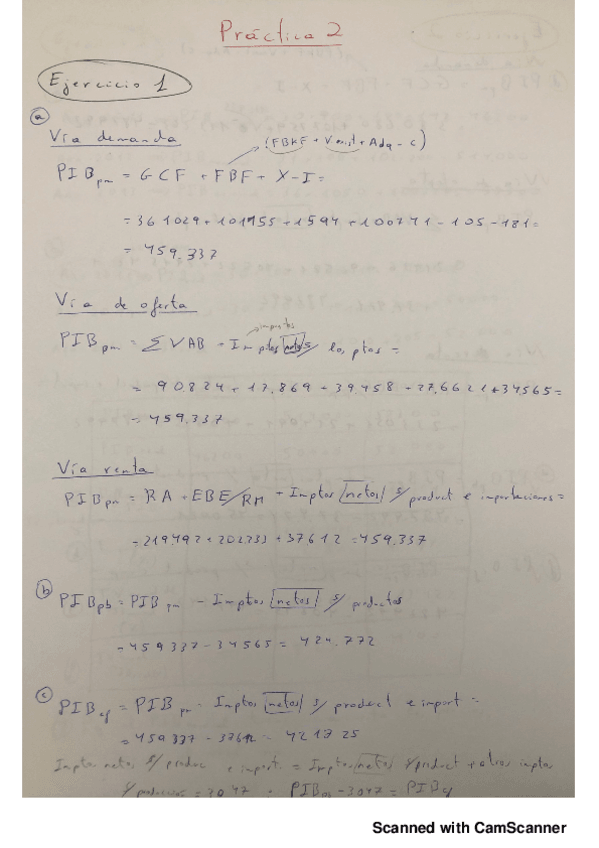 Práctica 2
Ejercicio 1
a
Vía demanda
(FBKF + Vexist + Adq - c)
PIBpm = GCF + FBF + X-I =
= 361029 + 101955 + 1594 + 100741 - 105 - 181 =
= 459.337
Vía de oferta
impuestos
PIBpm = ∑ VAB + Imptos netos s/ los ptos =
= 90.824 + 12.869 + 39458 + 27.662 + 34565 =
= 459.337
Vía renta
PIBpm = RA + EBE/RM + Imptos netos s/ product e importaciones =
= 219492 + 202233 + 37612 = 459.337
b
PIBpb = PIBpm - Imptos netos s/ productos
= 459337 - 34565 = 424.772
c
PIBcf = PIBpm - Imptos netos s/ product e import =
= 459337 - 37612 = 421725
Imptos netos s/ produc e import. = Imptos netos s/ product + otros imptos
s/ = 3047 PIB - 3047 = PIBcf
Scanned with CamScanner